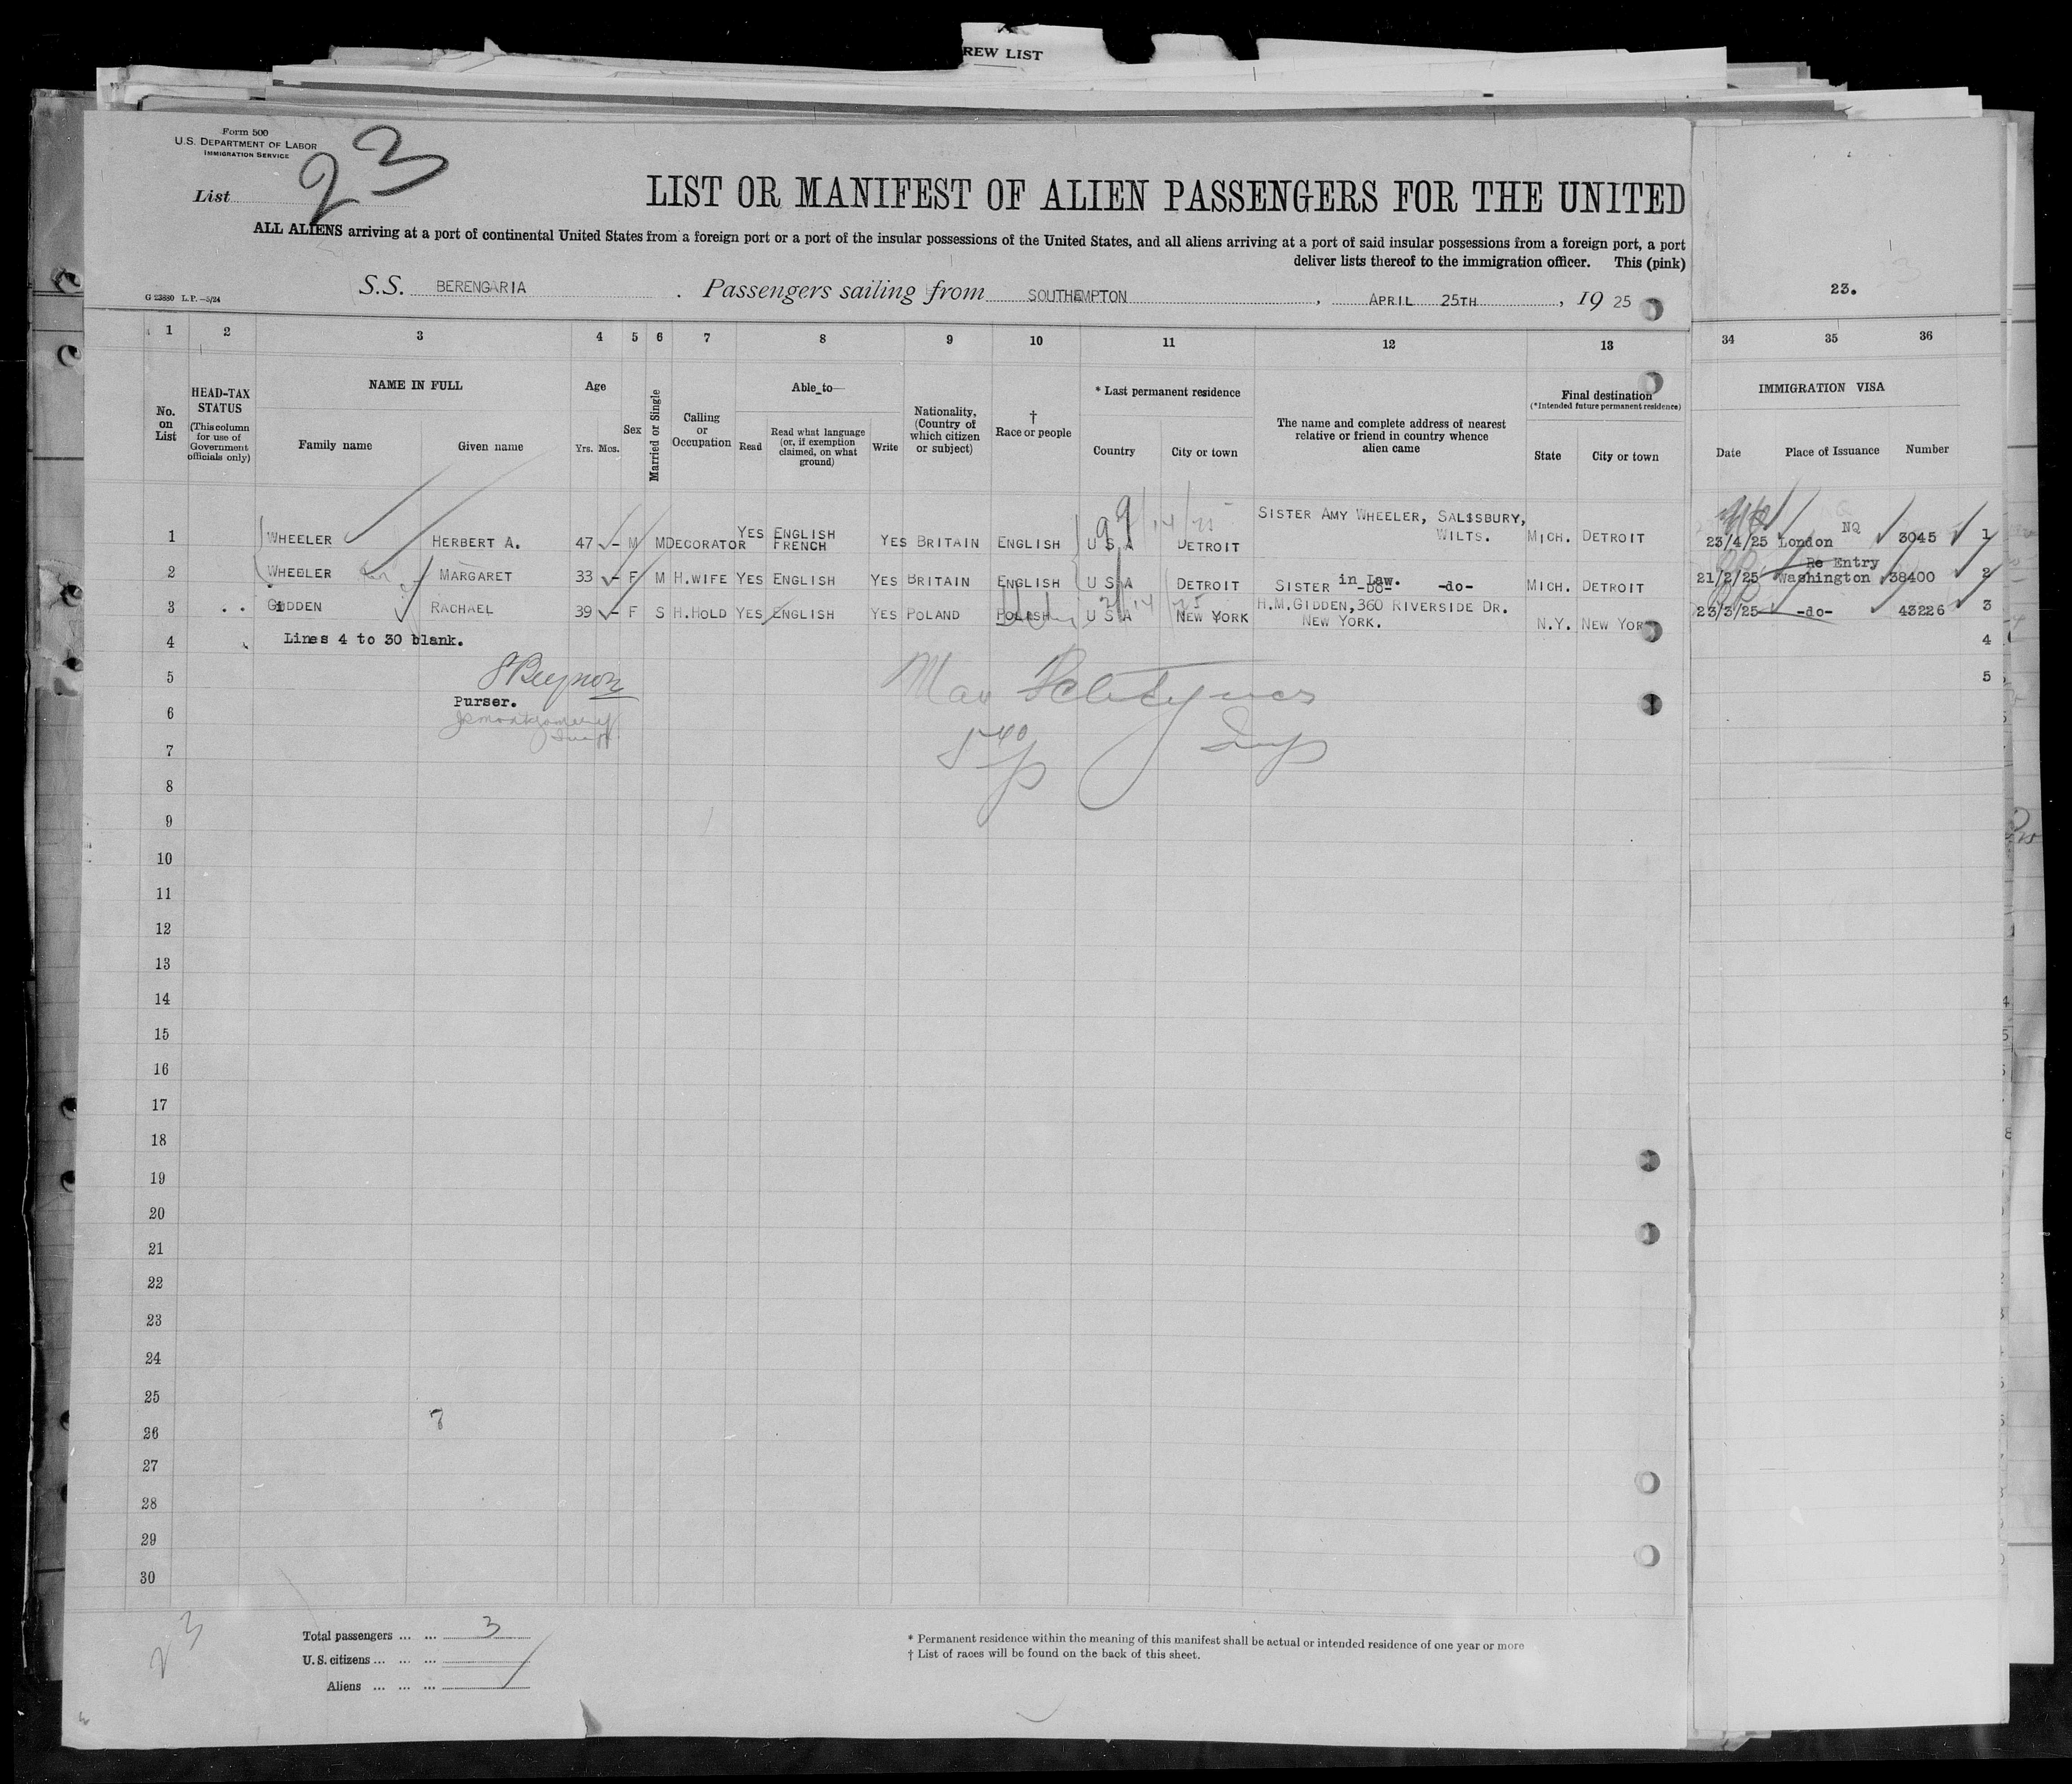 REW LIST
Form 500
U.S. DEPARTMENT OF LABOR
IMMIGRATION SERVICE
List 23
LIST OR MANIFEST OF ALIEN PASSENGERS FOR THE UNITED
ALL ALIENS arriving at a port of continental United States from a foreign port or a port of the insular possessions of the United States, and all aliens arriving at a port of said insular possessions from a foreign port, a port
deliver lists thereof to the immigration officer. This (pink)
G 23880 L.P.—5/24
S.S. BERENGARIA. Passengers sailing from SOUTHAMPTON, APRIL 25TH, 19 25
23.
1 2 3 4 5 6 7 8 9 10 11 12 13 34 35 36
No. on List
HEAD-TAX STATUS (This column for use of Government officials only)
NAME IN FULL
Family name Given name
Age
Yrs. Mos.
Sex
Married or Single
Calling or Occupation
Able to—
Read
Read what language (or, if exemption claimed, on what ground)
Write
Nationality, (Country of which citizen or subject)
† Race or people
* Last permanent residence
Country City or town
The name and complete address of nearest relative or friend in country whence alien came
Final destination
(*Intended future permanent residence)
State City or town
IMMIGRATION VISA
Date Place of Issuance Number
1 WHEELER HERBERT A. 47 - M M DECORATOR YES ENGLISH FRENCH YES BRITAIN ENGLISH U S A DETROIT SISTER AMY WHEELER, SALSSBURY, WILTS. MICH. DETROIT 23/4/25 London NQ 3045 1
2 WHEELER MARGARET 33 - F M H.WIFE YES ENGLISH YES BRITAIN ENGLISH U S A DETROIT SISTER in Law. -DO- -do- MICH. DETROIT 21/2/25 Re Entry Washington 38400 2
3 GIDDEN RACHAEL 39 - F S H.HOLD YES ENGLISH YES POLAND POLISH U S A NEW YORK H.M.GIDDEN, 360 RIVERSIDE DR. NEW YORK. N.Y. NEW YOR 23/3/25 -do- 43226 3
4 Lines 4 to 30 blank. 4
5 5
Purser.
6
7
8
9
10
11
12
13
14
15
16
17
18
19
20
21
22
23
24
25
26
27
28
29
30
23
Total passengers ... ... 3
U.S. citizens ... ... ...
Aliens ... ... ...
* Permanent residence within the meaning of this manifest shall be actual or intended residence of one year or more
† List of races will be found on the back of this sheet.